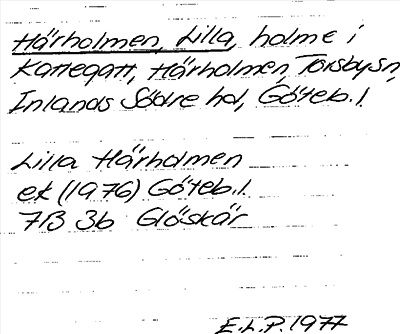 Härholmen, Lilla, holme i
Kattegatt, Härholmen, Torsby sn,
Inlands Södre hd, Göteb. l.
Lilla Härholmen
ek (1976) Göteb. l.
7B 3b Glöskär
E.L.P. 1977